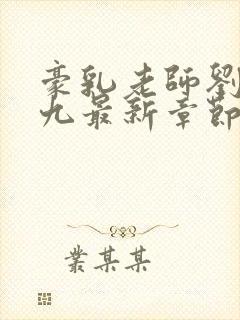 豪乳老師劉
九最新章節
業某某